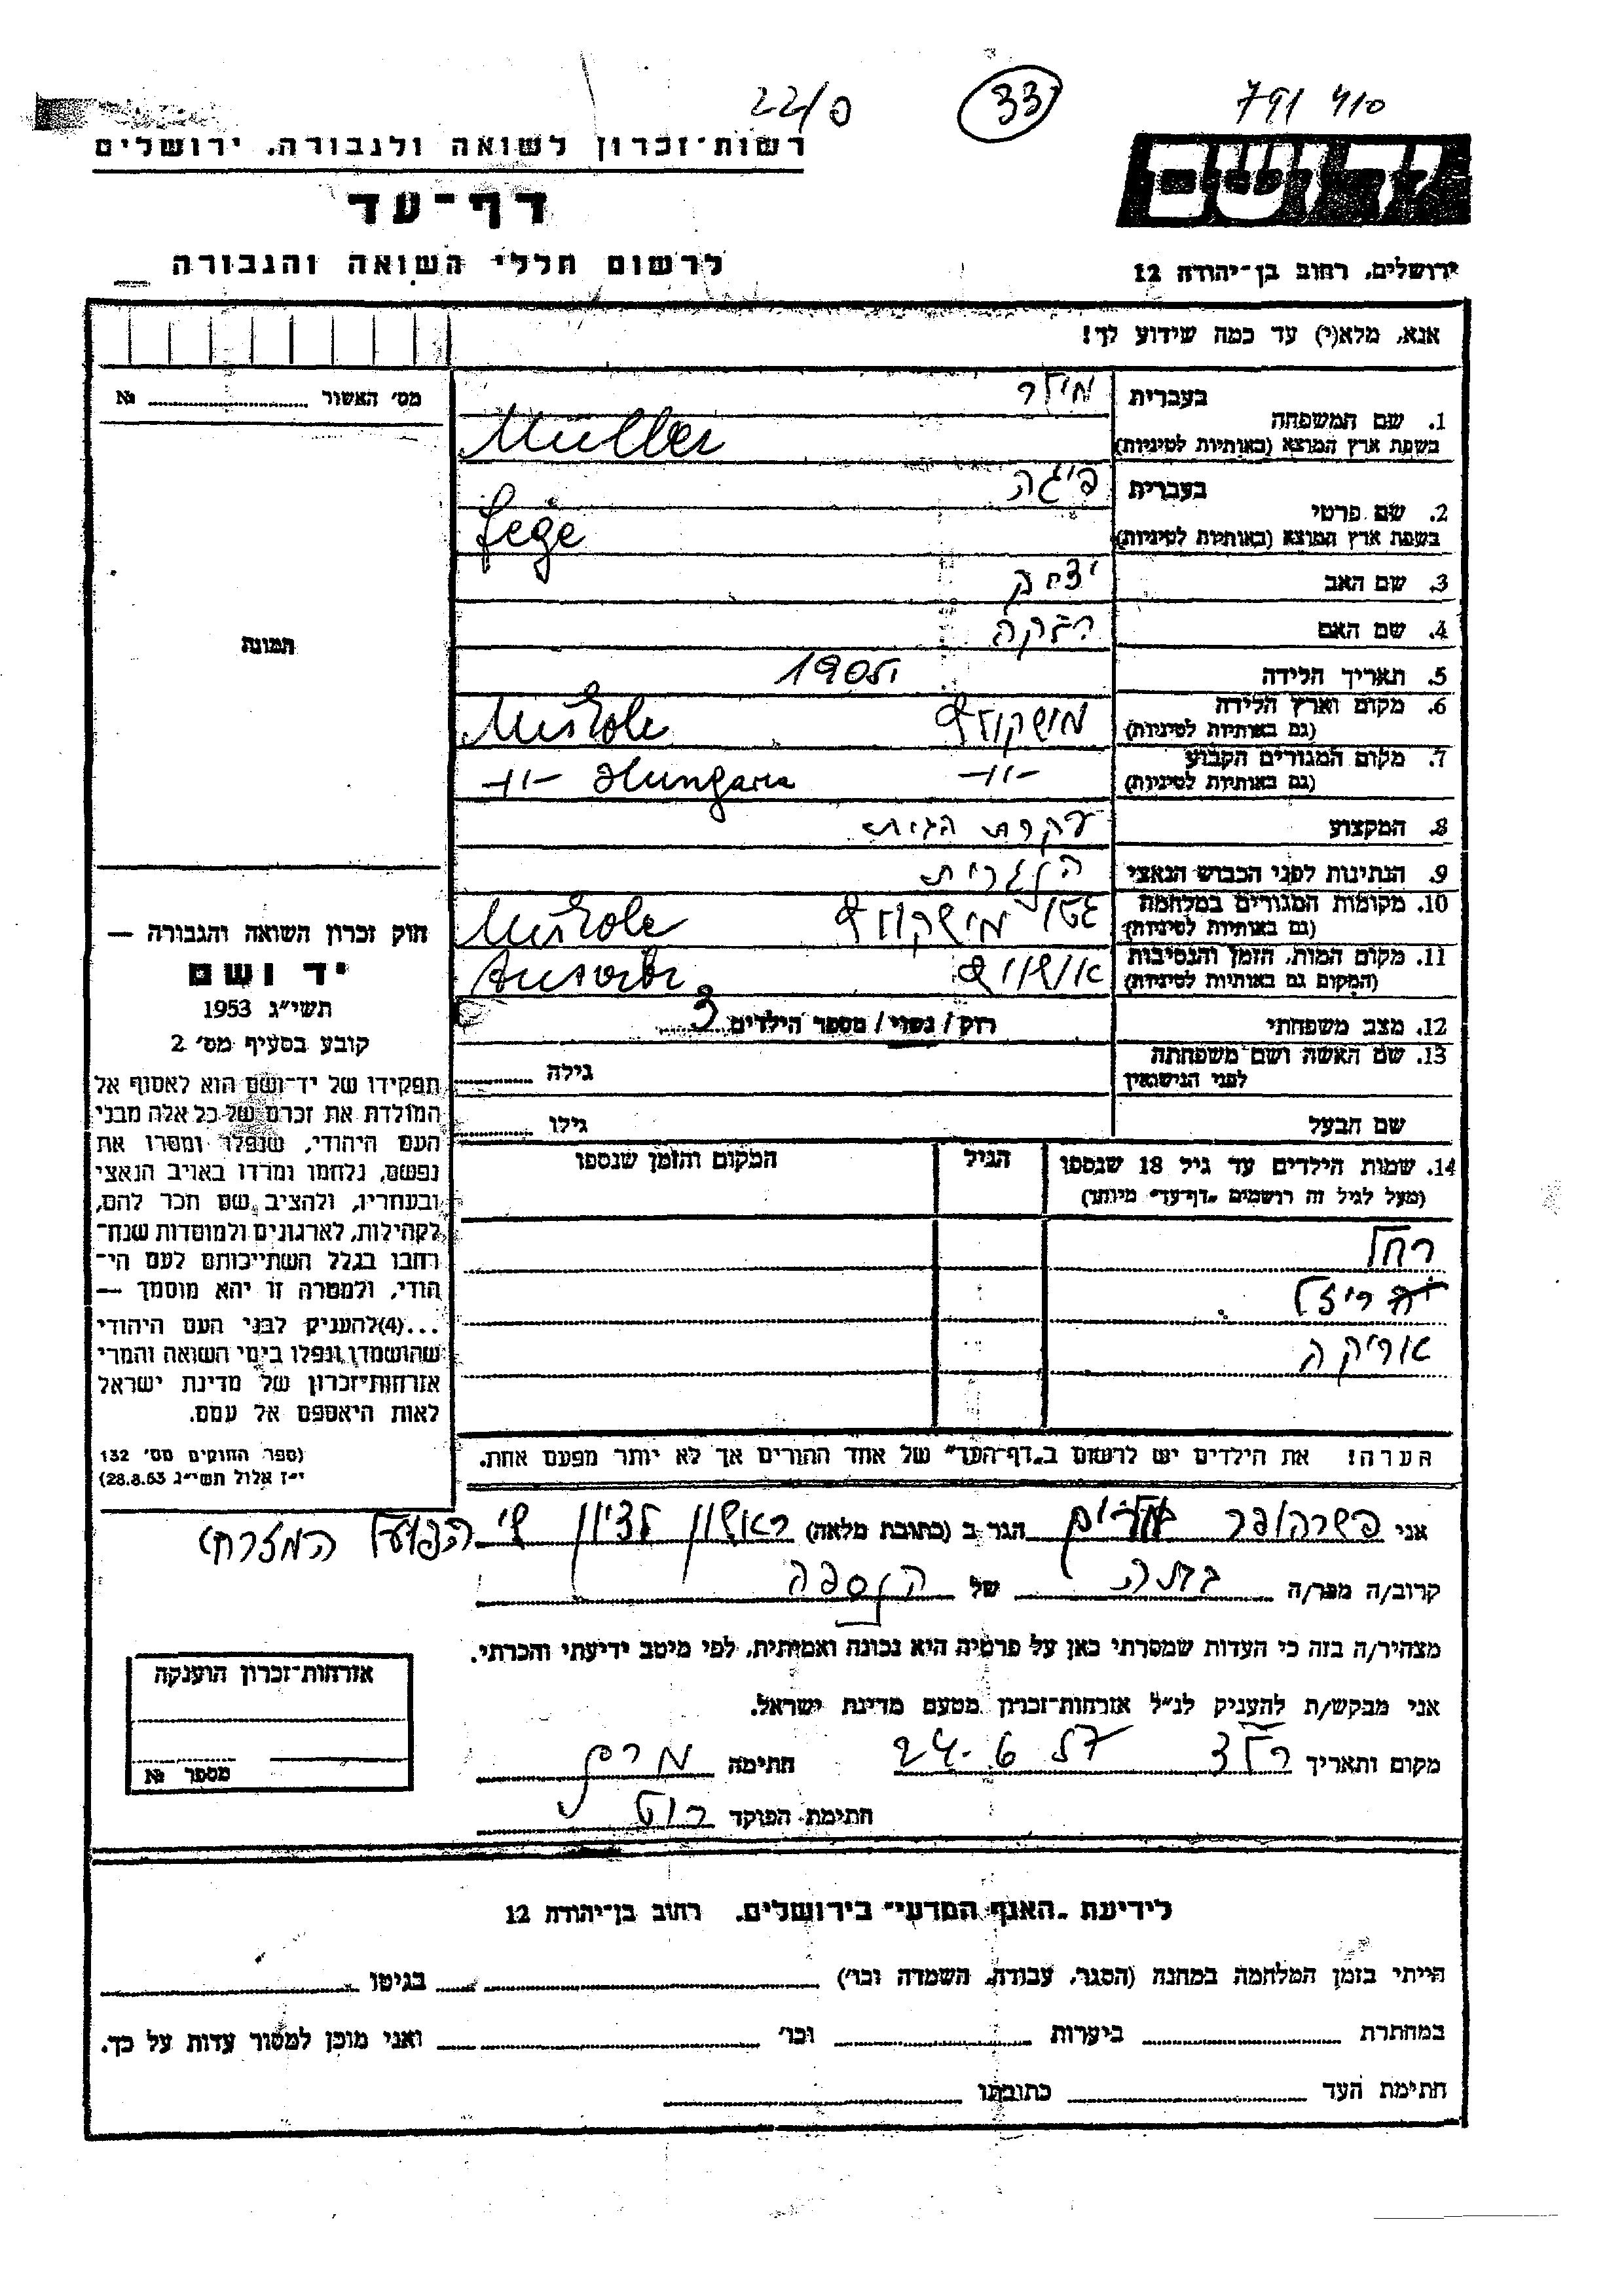 22/פ
33
791 410
רשות־זכרון לשואה ולגבורה, ירושלים
דף־עד
לרשום חללי השואה והגבורה
יד ושם
ירושלים, רחוב בן־יהודה 12
אנא, מלא(י) עד כמה שידוע לך!
מס׳ האשור № 
1. שם המשפחה
בעברית מילר
בשפת ארץ המוצא (באותיות לטיניות) Müller
2. שם פרטי
בעברית פיגה
בשפת ארץ המוצא (באותיות לטיניות) fege
3. שם האב יצחק
4. שם האם רבקה
5. תאריך הלידה 1905
6. מקום וארץ הלידה
(גם באותיות לטיניות) מישקולץ Miskole
7. מקום המגורים הקבוע
(גם באותיות לטיניות) -"- Hungaria -"-
8. המקצוע עקרת הבית
9. הנתינות לפני הכבוש הנאצי הונגרית
10. מקומות המגורים במלחמה
(גם באותיות לטיניות) גטו מישקולץ Miskole
11. מקום המות, הזמן והנסיבות
(המקום גם באותיות לטיניות) אושויץ
12. מצב משפחתי רוק / נשוי / מספר הילדים 3
13. שם האשה ושם משפחתה
לפני הנישואין גילה
שם הבעל גילו
14. שמות הילדים עד גיל 18 שנספו
(מעל לגיל זה רושמים „דף־עד״ מיוחד)
הגיל
המקום והזמן שנספו
רחל
רייזל
אוריקה
הערה! את הילדים יש לרשום ב„דף־העד״ של אחד ההורים אך לא יותר מפעם אחת.
תמונה
חוק זכרון השואה והגבורה —
יד ושם
תשי״ג 1953
קובע בסעיף מס׳ 2
תפקידו של יד־ושם הוא לאסוף אל
המולדת את זכרם של כל אלה מבני
העם היהודי, שנפלו ומסרו את
נפשם, נלחמו ומרדו באויב הנאצי
ובעוזריו, ולהציב שם וזכר להם,
לקהילות, לארגונים ולמוסדות שנח־
רבו בגלל השתייכותם לעם הי־
הודי, ולמטרה זו יהא מוסמך —
...(4)להעניק לבני העם היהודי
שהושמדו ונפלו בימי השואה והמרי
אזרחות־זכרון של מדינת ישראל
לאות היאספם אל עמם.
(ספר החוקים מס׳ 132
י״ז אלול תשי״ג 28.8.53)
אני פשרהופר מרים הגר ב (כתובת מלאה) ראשון לציון שי׳ הפועל המזרחי
קרוב/ה מכר/ה גיסה של הנספה
מצהיר/ה בזה כי העדות שמסרתי כאן על פרטיה היא נכונה ואמיתית, לפי מיטב ידיעתי והכרתי.
אני מבקש/ת להעניק לנ״ל אזרחות־זכרון מטעם מדינת ישראל.
מקום ותאריך רלצ 24.6.57 חתימה
חתימת הפוקד
אזרחות־זכרון הוענקה
מספר №
לידיעת „האגף המדעי״ בירושלים, רחוב בן־יהודה 12
הייתי בזמן המלחמה במחנה (הסגר, עבודה, השמדה וכו׳) בגיטו
במחתרת ביערות וכו׳ ואני מוכן למסור עדות על כך.
חתימת העד כתובתו